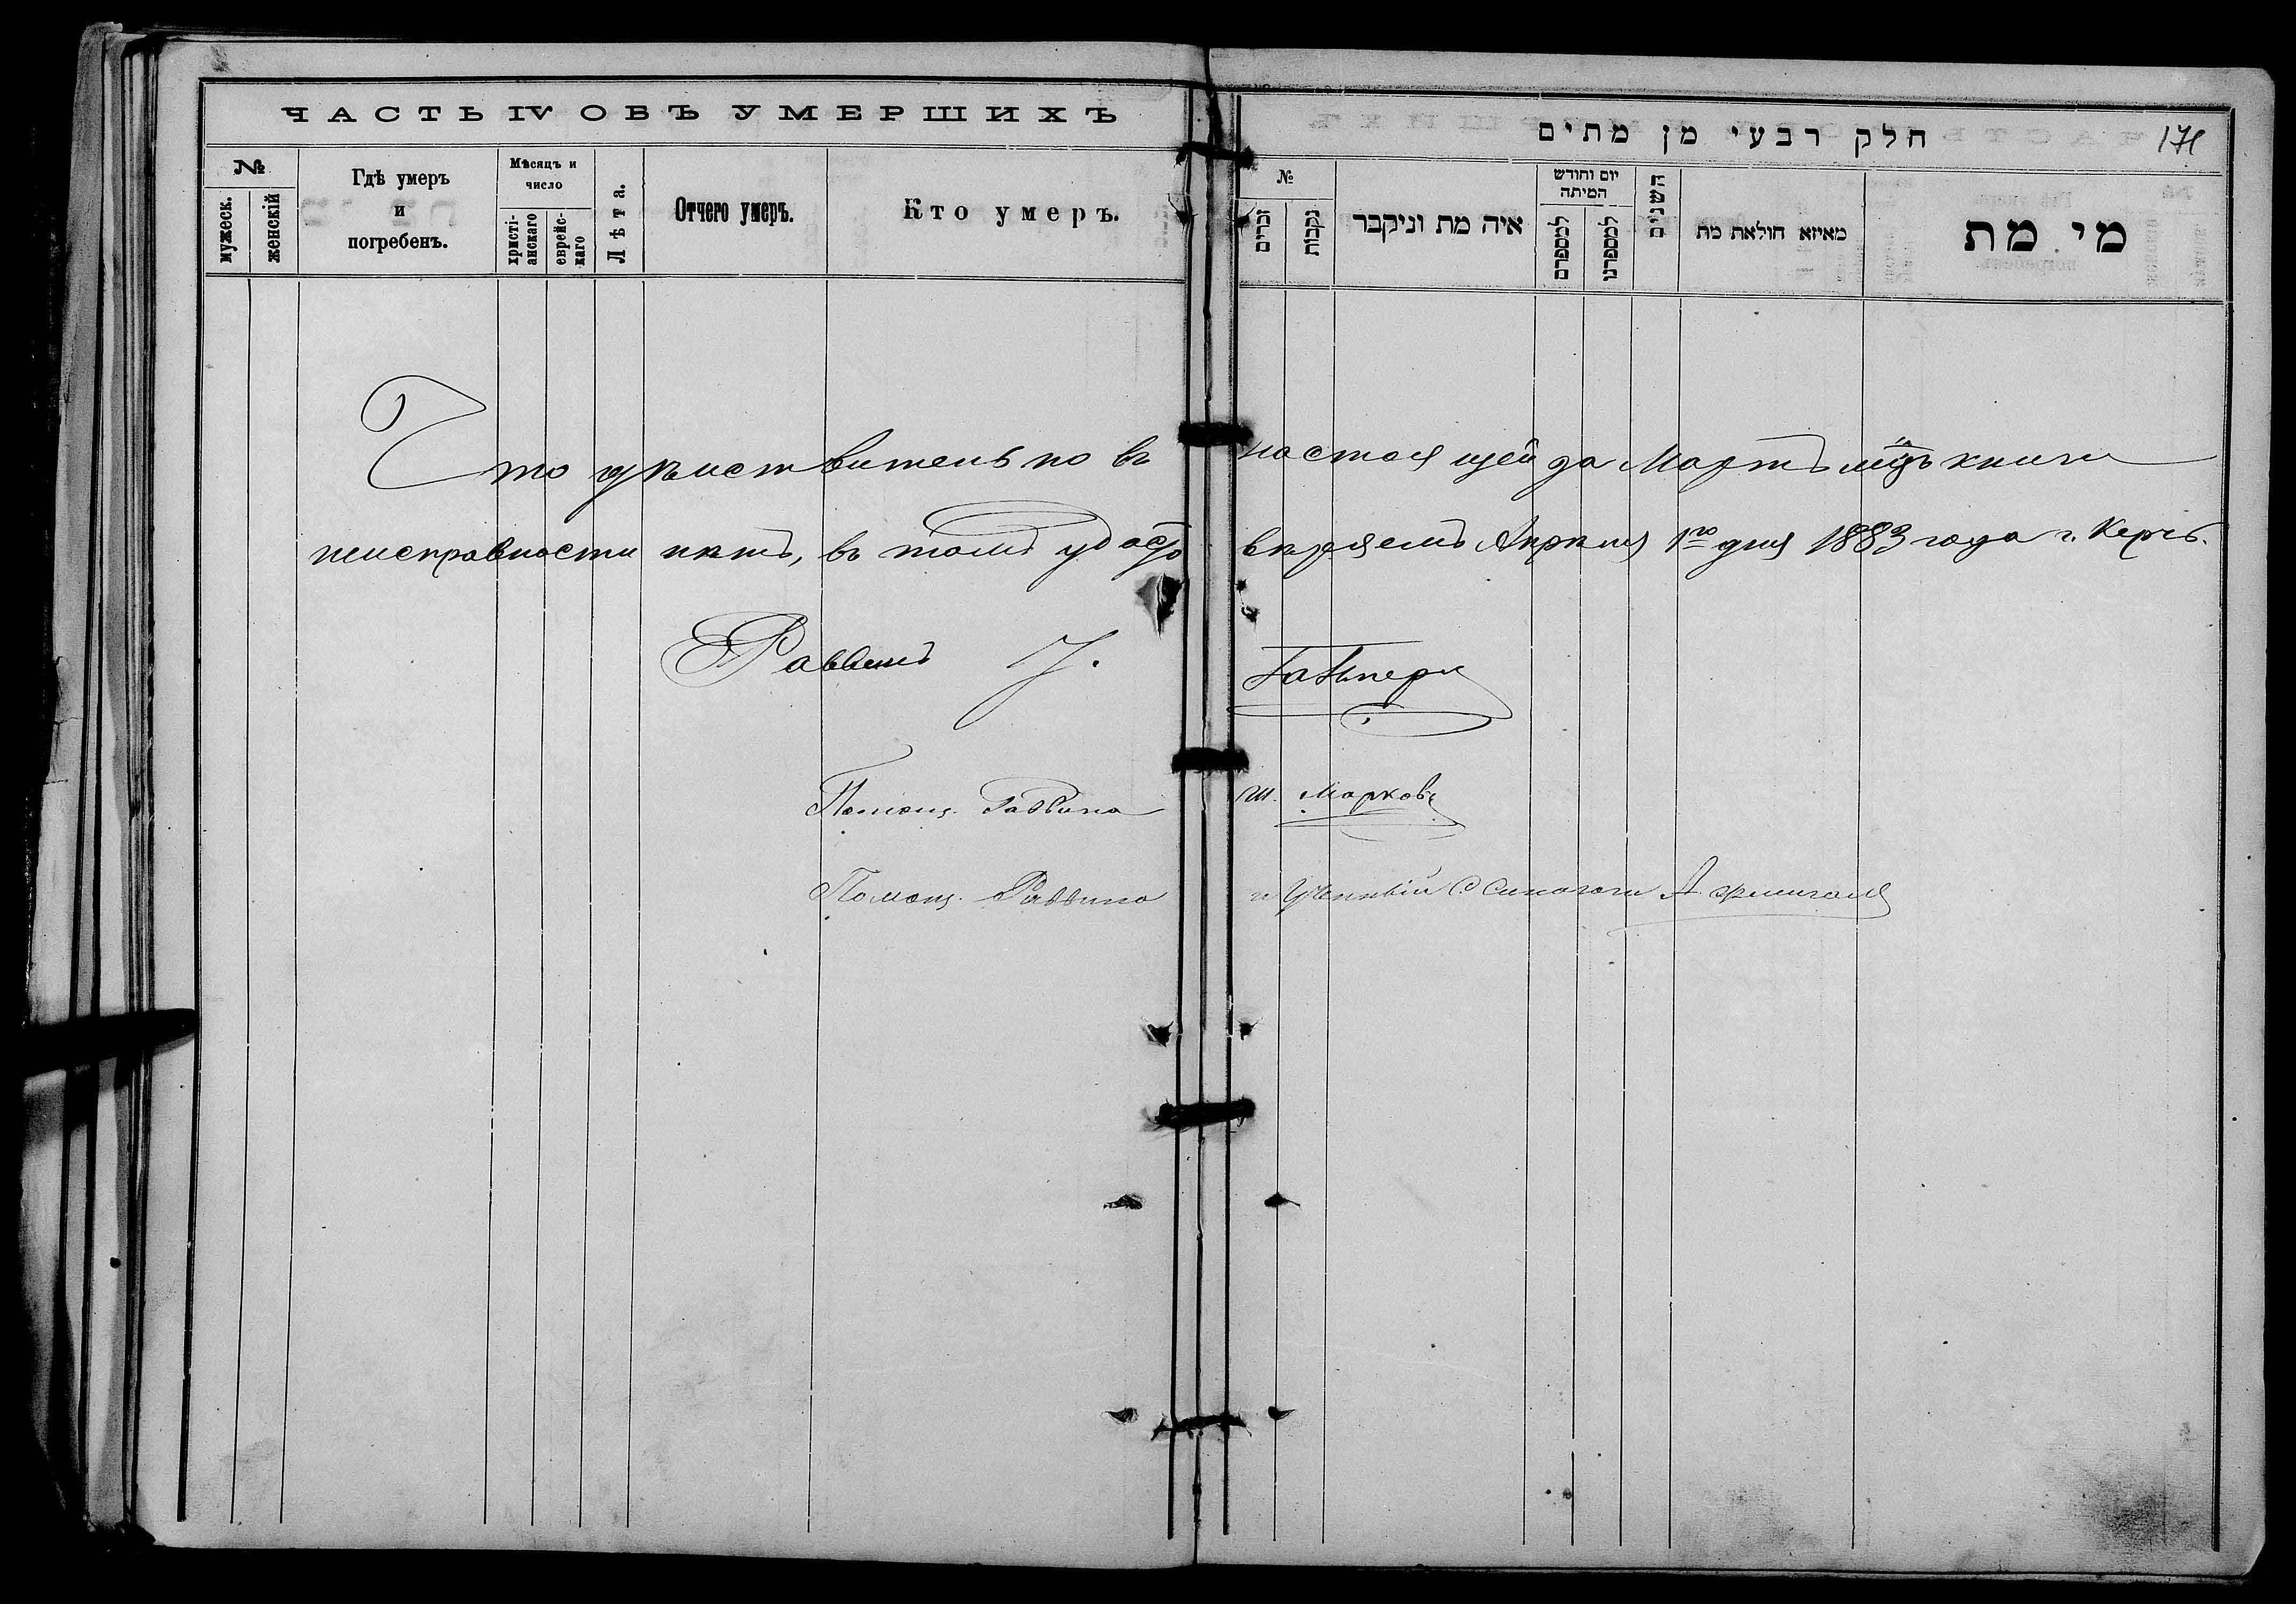 ЧАСТЬ IV ОБЪ УМЕРШИХЪ
№
мужеск.
женскій
Гдѣ умеръ
и
погребенъ.
Мѣсяцъ и
число
христі-
анскаго
еврейс-
каго
Лѣта.
Отчего умеръ.
Кто умеръ.
חלק רבעי מן מתים
№
זכרים
נקבות
איה מת וניקבר
יום וחודש
המיתה
למספרם
למספרנו
השנים
מאיזא חולאת מת
מי מת
Что дѣйствительно въ настоящей за Мартъ мцъ книги
неисправности нѣтъ, въ томъ удостовѣряемъ Апрѣля 1го дня 1883 года г. Керчь.
Раввинъ
Помощ. Раввина Ш. Марковъ
Помощ. Раввина и Ученный Синагоги А.